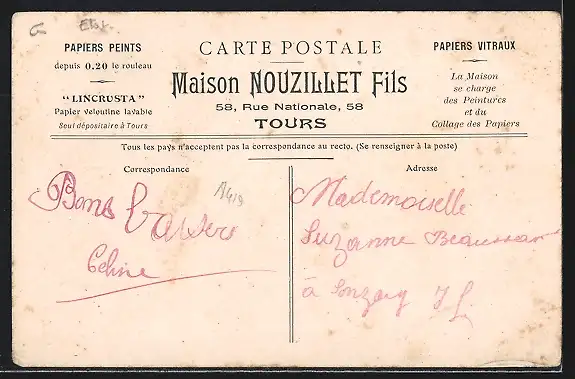 Etat
PAPIERS PEINTS
depuis 0.20 le rouleau
"LINCRUSTA"
Papier veloutine lavable
Seul dépositaire à Tours
CARTE POSTALE
Maison NOUZILLET Fils
58, Rue Nationale, 58
TOURS
PAPIERS VITRAUX
La Maison
se charge
des Peintures
et du
Collage des Papiers
Tous les pays n'acceptent pas la correspondance au recto. (Se renseigner à la poste)
Correspondance
Adresse
Bons Baisers
Celine
Mademoiselle
Suzanne
à Sonzay I L